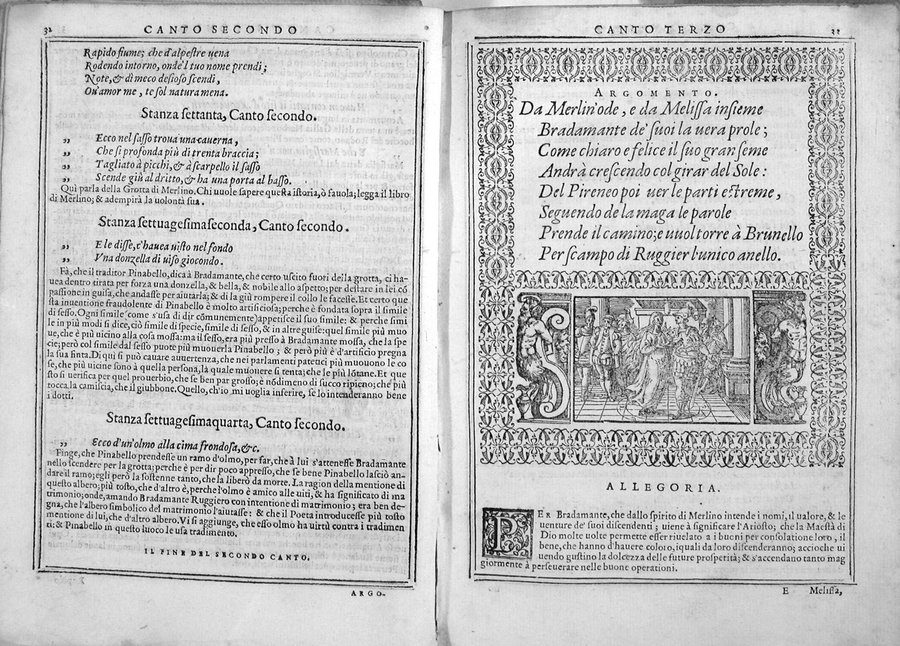 32 CANTO SECONDO
Rapido fiume; che d'alpestre uena
Rodendo intorno, onde'l tuo nome prendi;
Note, & dì meco desioso scendi,
Ou'amor me, te sol natura mena.
Stanza settanta, Canto secondo.
„ Ecco nel sasso troua una cauerna,
„ Che si profonda più di trenta braccia;
„ Tagliato à picchi, & à scarpello il sasso
„ Scende giù al dritto, & ha una porta al basso.
Quì parla della Grotta di Merlino. Chi uuole sapere questa istoria, ò fauola; legga il libro
di Merlino; & adempirà la uolontà sua.
Stanza settuagesimaseconda, Canto secondo.
„ E le disse, c'hauea uisto nel fondo
„ Vna donzella di uiso giocondo.
Fà, che'l traditor Pinabello, dica à Bradamante, che certo uscito fuori della grotta, ci ha-
uea dentro tirata per forza una donzella, & bella, & nobile allo aspetto; per destare in lei cō
passione in guisa, che andasse per aiutarla; & di là giù rompere il collo le facesse. Et certo que
sta inuentione fraudolente di Pinabello è molto artificiosa; perche è fondata sopra il simile
di sesso. Ogni simile (come s'usa di dir cōmunemente) appetisce il suo simile: & perche simi
le in più modi si dice, ciò simile di specie, simile di sesso, & in altre guise: quel simile più muo
ue, che è più uicino alla cosa mossa: ma il sesso, era più presso à Bradamante mossa, che la spe
cie; però col simile dal sesso puote più muouerla Pinabello; & però più è d'artificio pregna
la sua finta. Di quì si può cauare auuertenza, che nei parlamenti patetici più muouono le co
se, che più uicine sono à quella persona, la quale muouere si tenta; che le più lōtane. Et que
sto si uerifica per quel prouerbio, che se ben par grosso; è nōdimeno di succo ripieno; che più
tocca la camiscia, che il giubbone. Quello, ch'io mi uoglia inferire, se lo intenderanno bene
i dotti.
Stanza settuagesimaquarta, Canto secondo.
„ Ecco d'un'olmo alla cima frondosa, &c.
Finge, che Pinabello prendesse un ramo d'olmo, per far, che à lui s'attenesse Bradamante
nello scendere per la grotta; perche è per dir poco appresso, che se bene Pinabello lasciò an-
dare il ramo; egli però la sostenne tanto, che la liberò da morte. La ragion della mentione di
questo albero; più tosto, che d'altro è, perche l'olmo è amico alle uiti, & ha significato di ma
trimonio; onde, amando Bradamante Ruggiero con intentione di matrimonio; era ben de-
gna, che l'albero simbolico del matrimonio l'aiutasse: & che il Poeta introducesse più tosto
mentione di lui, che d'altro albero. Vi si aggiunge, che esso olmo ha uirtù contra i tradimen
ti: & Pinabello in questo luoco le usa tradimento.
IL FINE DEL SECONDO CANTO.
ARGO-
CANTO TERZO 33
ARGOMENTO.
Da Merlin'ode, e da Melissa insieme
Bradamante de' suoi la uera prole;
Come chiaro e felice il suo gran seme
Andrà crescendo col girar del Sole:
Del Pireneo poi uer le parti estreme,
Seguendo de la maga le parole
Prende il camino; e uuol torre à Brunello
Per scampo di Ruggier l'unico anello.
ALLEGORIA.
PER Bradamante, che dallo spirito di Merlino intende i nomi, il ualore, & le
uenture de' suoi discendenti; uiene à significare l'Ariosto; che la Maestà di
Dio molte uolte permette esser riuelato a i buoni per consolatione loro, il
bene, che hanno d'hauere coloro, i quali da loro discenderanno; accioche ui
uendo gustino la dolcezza delle future prosperità; & s'accendano tanto mag
giormente à perseuerare nelle buone operationi.
E Melissa,